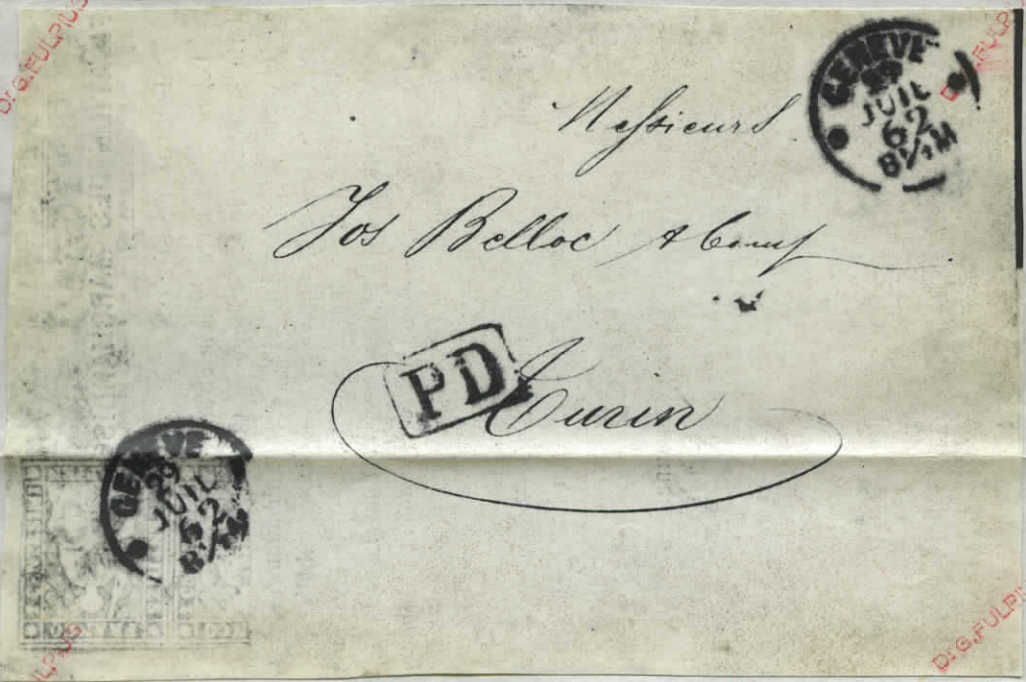 Dr G. FULPIUS
GENEVE
29
JUIL
62
8¼M
Messieurs
Jos Belloc & Comp
PD
Turin
GENEVE
29
JUIL
62
8¼M
Dr G. FULPIUS